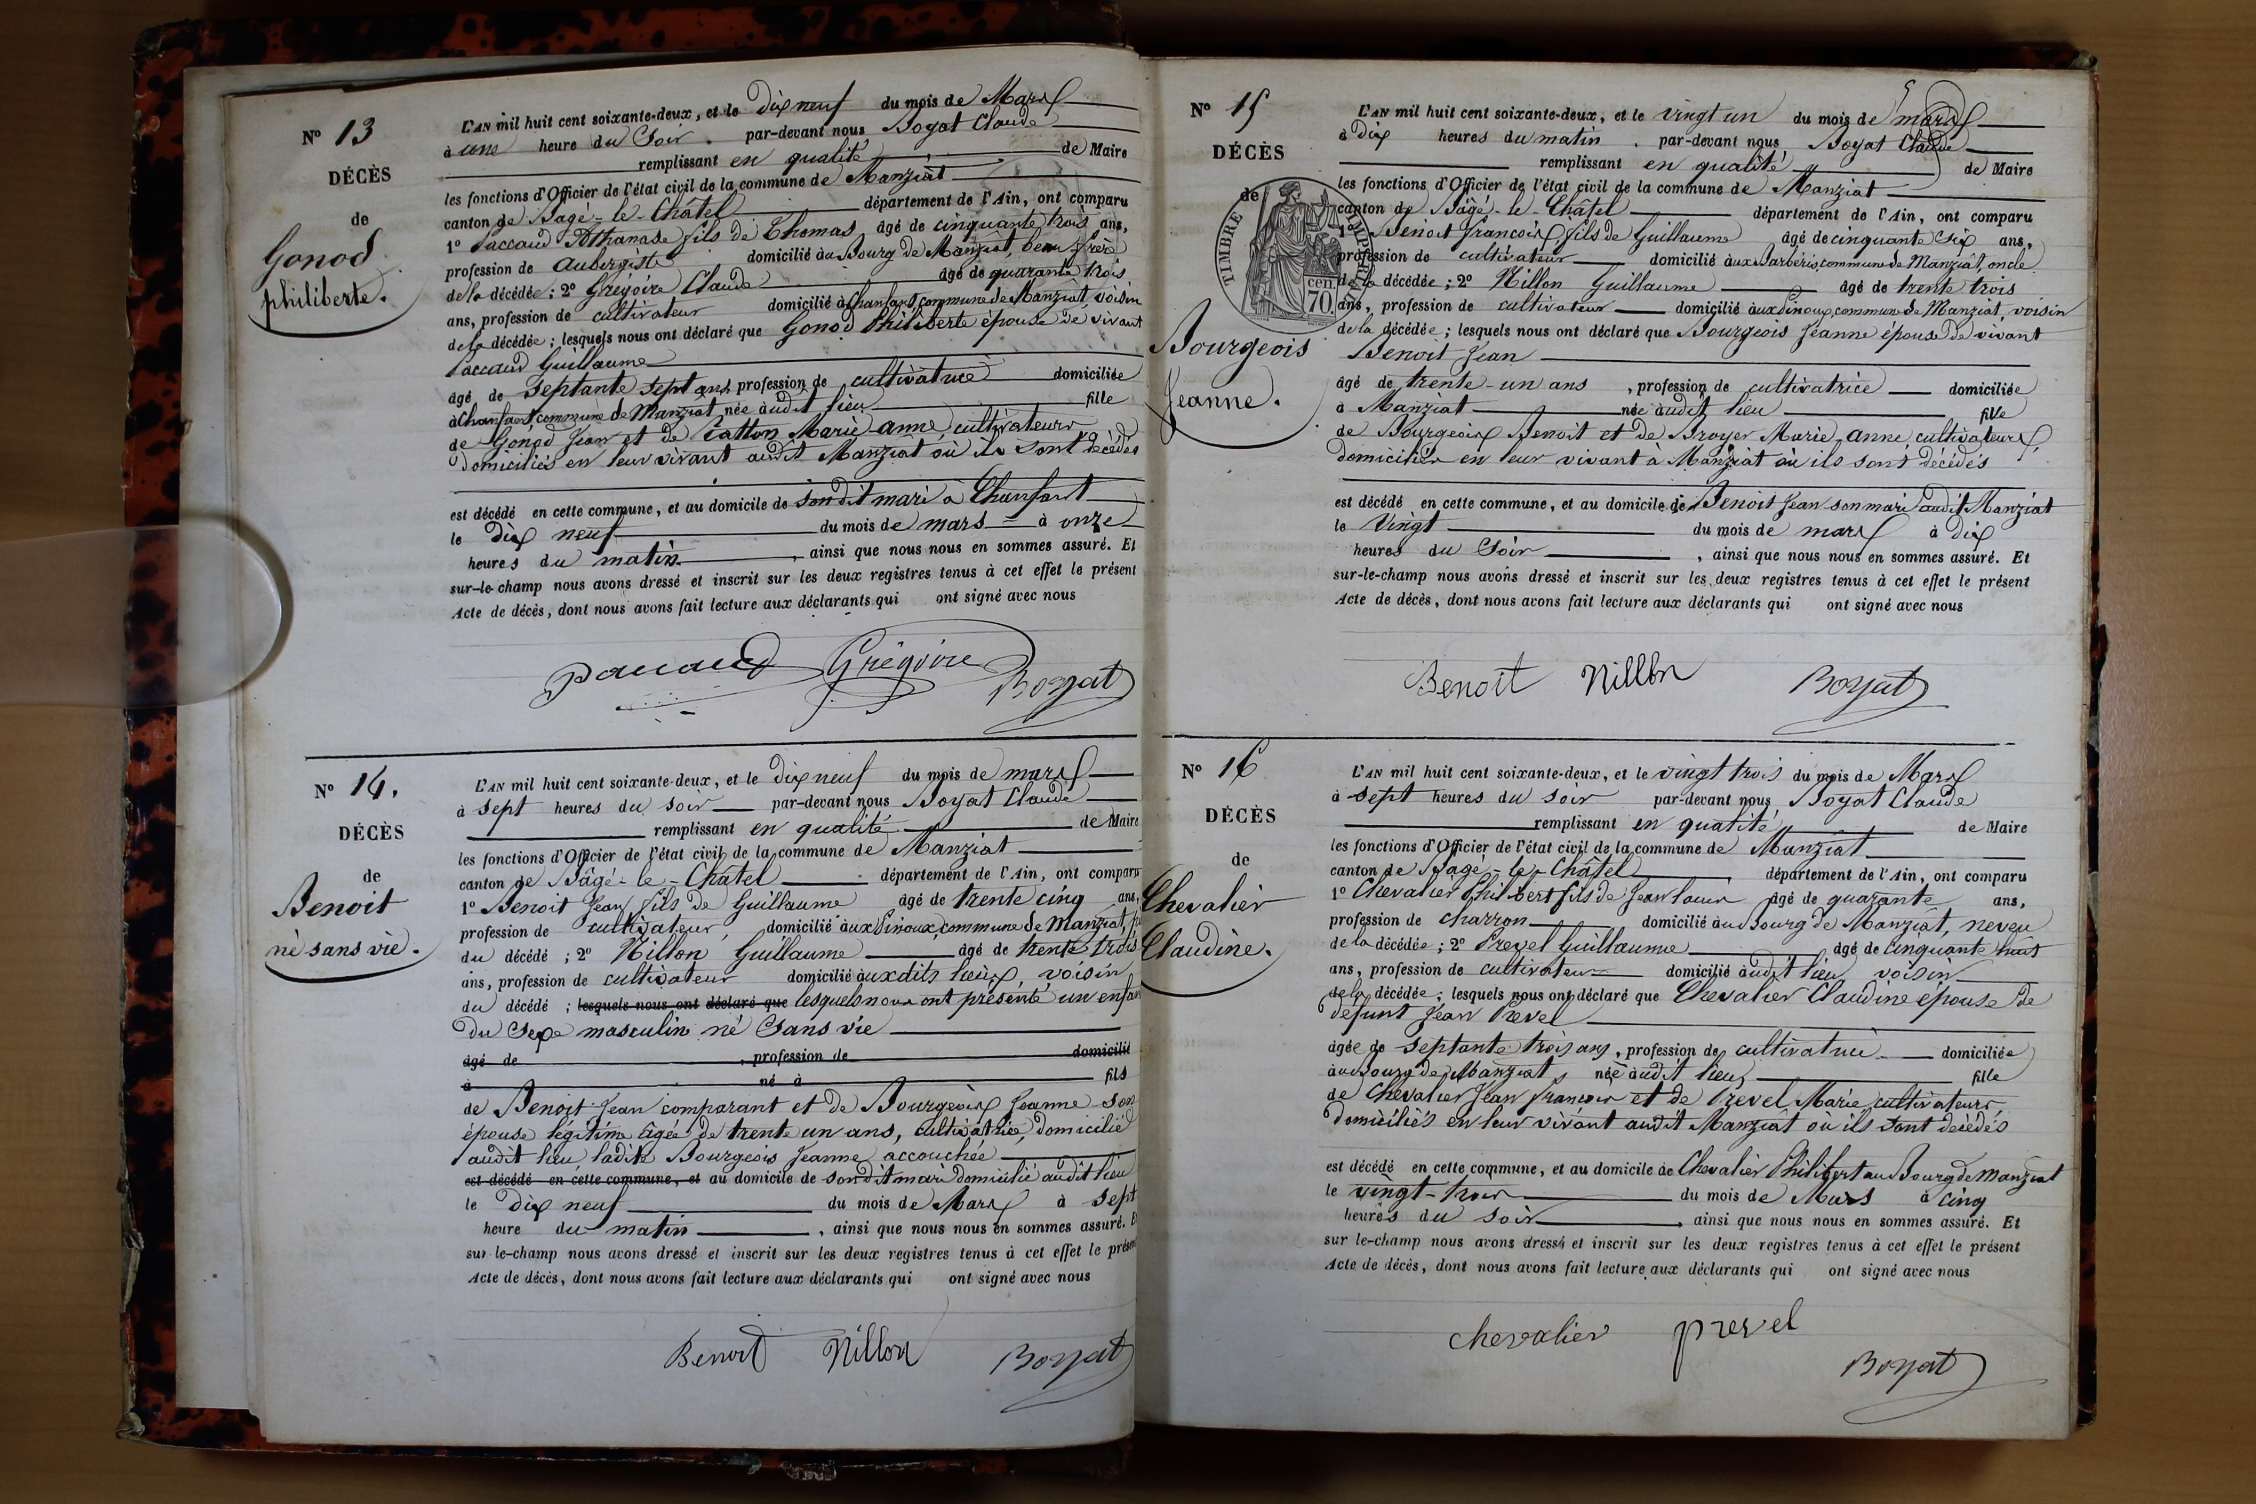 N° 13
DÉCÈS
de
Gonod
philiberte.
L'AN mil huit cent soixante-deux, et le dix neuf du mois de Mars
à une heure du Soir. par-devant nous Boyat Claude
remplissant en qualité de Maire
les fonctions d'Officier de l'état civil de la commune de Manziat
canton de Bâgé-le-Châtel département de l'Ain, ont comparu
1° Paccaud Athanase fils de Thomas âgé de cinquante trois ans,
profession de aubergiste domicilié au Bourg de Manziat, beau frère
de la décédée; 2° Grégoire Claude âgé de quarante trois
ans, profession de cultivateur domicilié à Chanfant, commune de Manziat, voisin
de la décédée; lesquels nous ont déclaré que Gonod Philiberte épouse de vivant
Paccaud Guillaume
âgé de septante sept ans, profession de cultivatrice domiciliée
à Chanfant, commune de Manziat, née audit lieu fille
de Gonod Jean et de Catton Marie anne cultivateurs
domiciliés en leur vivant audit Manziat où ils sont décédés
est décédé en cette commune, et au domicile de son dit mari à Chanfant
le dix neuf du mois de mars à onze
heures du matin, ainsi que nous nous en sommes assuré. Et
sur-le-champ nous avons dressé et inscrit sur les deux registres tenus à cet effet le présent
Acte de décès, dont nous avons fait lecture aux déclarants qui ont signé avec nous
Paccaud Grégoire Boyat
N° 14.
DÉCÈS
de
Benoit
né sans vie.
L'AN mil huit cent soixante-deux, et le dix neuf du mois de mars
à sept heures du soir par-devant nous Boyat Claude
remplissant en qualité de Maire
les fonctions d'Officier de l'état civil de la commune de Manziat
canton de Bâgé-le-Châtel département de l'Ain, ont comparu
1° Benoit Jean fils de Guillaume âgé de trente cinq ans,
profession de cultivateur, domicilié aux Pinoux, commune de Manziat,
du décédé; 2° Nillon Guillaume âgé de trente trois
ans, profession de cultivateur domicilié auxdits lieux, voisin
du décédé; lesquels nous ont déclaré que lesquels nous ont présenté un enfant
du sexe masculin né sans vie
âgé de, profession de domicilié
à né à fils
de Benoit Jean comparant et de Bourgeois Jeanne son
épouse légitime âgée de trente un ans, cultivatrice, domicilié
audit lieu ladite Bourgeois Jeanne accouchée
est décédé en cette commune, et au domicile de son dit mari domicilié audit lieu
le dix neuf du mois de Mars à sept
heure du matin, ainsi que nous nous en sommes assuré. Et
sur-le-champ nous avons dressé et inscrit sur les deux registres tenus à cet effet le présent
Acte de décès, dont nous avons fait lecture aux déclarants qui ont signé avec nous
Benoit Nillon Boyat
N° 15
DÉCÈS
de
TIMBRE IMPERIAL
70 cen.
Bourgeois
Jeanne.
L'AN mil huit cent soixante-deux, et le vingt un du mois de mars
à dix heures du matin. par-devant nous Boyat Claude
remplissant en qualité de Maire
les fonctions d'Officier de l'état civil de la commune de Manziat
canton de Bâgé-le-Châtel département de l'Ain, ont comparu
1° Benoit François fils de Guillaume âgé de cinquante six ans,
profession de cultivateur domicilié aux Barberis, commune de Manziat, oncle
de la décédée; 2° Nillon Guillaume âgé de trente trois
ans, profession de cultivateur domicilié aux Pinoux, commune de Manziat, voisin
de la décédée; lesquels nous ont déclaré que Bourgeois Jeanne épouse de vivant
Benoit Jean
âgé de trente-un ans, profession de cultivatrice domiciliée
à Manziat née audit lieu fille
de Bourgeois Benoit et de Broyer Marie anne, cultivateurs,
domiciliés en leur vivant à Manziat où ils sont décédés
est décédé en cette commune, et au domicile de Benoit Jean son mari audit Manziat
le Vingt du mois de mars à dix
heures du Soir, ainsi que nous nous en sommes assuré. Et
sur-le-champ nous avons dressé et inscrit sur les deux registres tenus à cet effet le présent
Acte de décès, dont nous avons fait lecture aux déclarants qui ont signé avec nous
Benoit Nillon Boyat
N° 16
DÉCÈS
de
Chevalier
Claudine.
L'AN mil huit cent soixante-deux, et le vingt trois du mois de Mars
à sept heures du soir par-devant nous Boyat Claude
remplissant en qualité de Maire
les fonctions d'Officier de l'état civil de la commune de Manziat
canton de Bâgé-le-Châtel département de l'Ain, ont comparu
1° Chevalier Philibert fils de Jean Louis âgé de quarante ans,
profession de charron domicilié au Bourg de Manziat, neveu
de la décédée; 2° Prevel Guillaume âgé de cinquante huit
ans, profession de cultivateur domicilié audit lieu, voisin
de la décédée; lesquels nous ont déclaré que Chevalier Claudine épouse de
défunt Jean Prevel
âgée de septante trois ans, profession de cultivatrice domiciliée
au Bourg de Manziat, née audit lieu, fille
de Chevalier Jean François et de Prevel Marie cultivateurs
domiciliés en leur vivant audit Manziat où ils sont décédés
est décédé en cette commune, et au domicile de Chevalier Philibert au Bourg de Manziat
le vingt-trois du mois de Mars à cinq
heures du soir, ainsi que nous nous en sommes assuré. Et
sur le-champ nous avons dressé et inscrit sur les deux registres tenus à cet effet le présent
Acte de décès, dont nous avons fait lecture aux déclarants qui ont signé avec nous
chevalier prevel
Boyat